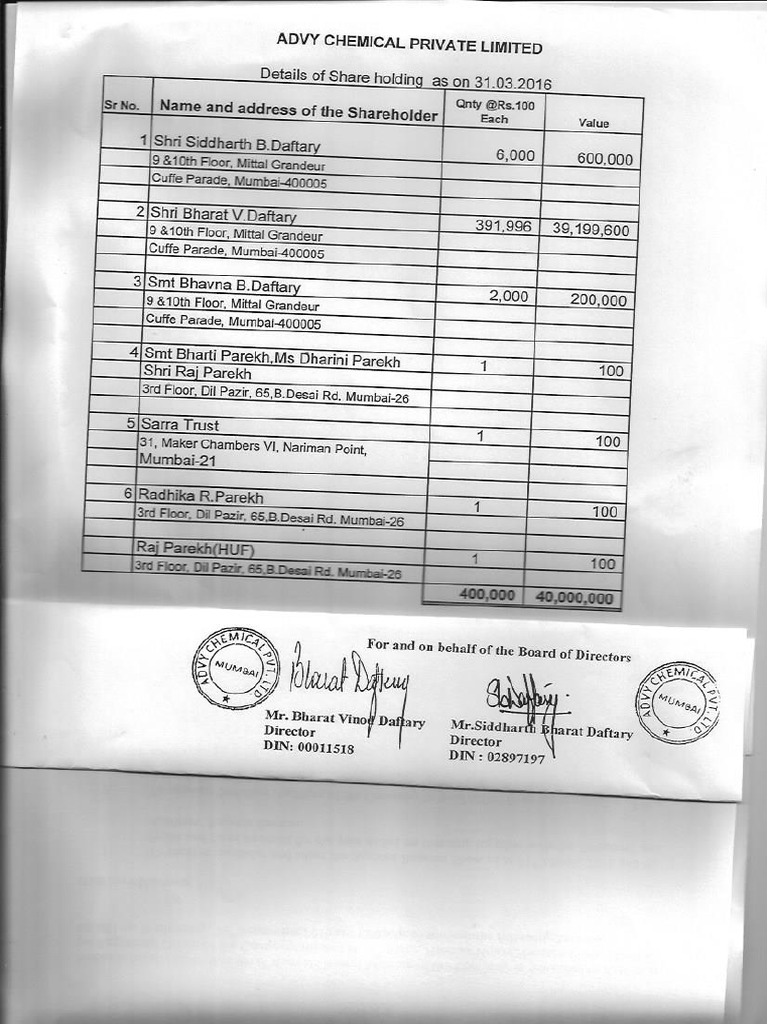 ADVY CHEMICAL PRIVATE LIMITED
Details of Share holding as on 31.03.2016
Sr No. Name and address of the Shareholder Qnty @Rs.100 Each Value
1 Shri Siddharth B.Daftary 6,000 600,000
9 &10th Floor, Mittal Grandeur
Cuffe Parade, Mumbai-400005
2 Shri Bharat V.Daftary 391,996 39,199,600
9 &10th Floor, Mittal Grandeur
Cuffe Parade, Mumbai-400005
3 Smt Bhavna B.Daftary 2,000 200,000
9 &10th Floor, Mittal Grandeur
Cuffe Parade, Mumbai-400005
4 Smt Bharti Parekh,Ms Dharini Parekh 1 100
Shri Raj Parekh
3rd Floor, Dil Pazir, 65,B.Desai Rd. Mumbai-26
5 Sarra Trust 1 100
31, Maker Chambers VI, Nariman Point,
Mumbai-21
6 Radhika R.Parekh 1 100
3rd Floor, Dil Pazir, 65,B.Desai Rd. Mumbai-26
Raj Parekh(HUF) 1 100
3rd Floor, Dil Pazir, 65,B.Desai Rd. Mumbai-26
400,000 40,000,000
For and on behalf of the Board of Directors
ADVY CHEMICAL PVT. LTD
MUMBAI
Bharat Daftary
ADVY CHEMICAL PVT. LTD
MUMBAI
Mr. Bharat Vinod Daftary
Director
DIN: 00011518
Mr.Siddharth Bharat Daftary
Director
DIN : 02897197